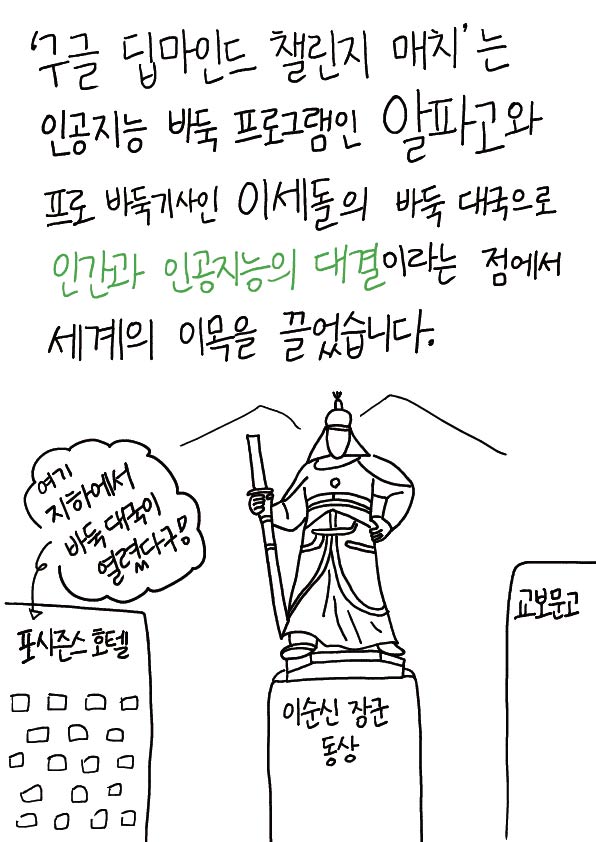 '구글 딥마인드 챌린지 매치'는
인공지능 바둑 프로그램인 알파고와
프로 바둑기사인 이세돌의 바둑 대국으로
인간과 인공지능의 대결이라는 점에서
세계의 이목을 끌었습니다.
여기
지하에서
바둑 대국이
열렸다구!
포시즌스 호텔
이순신 장군
동상
교보문고